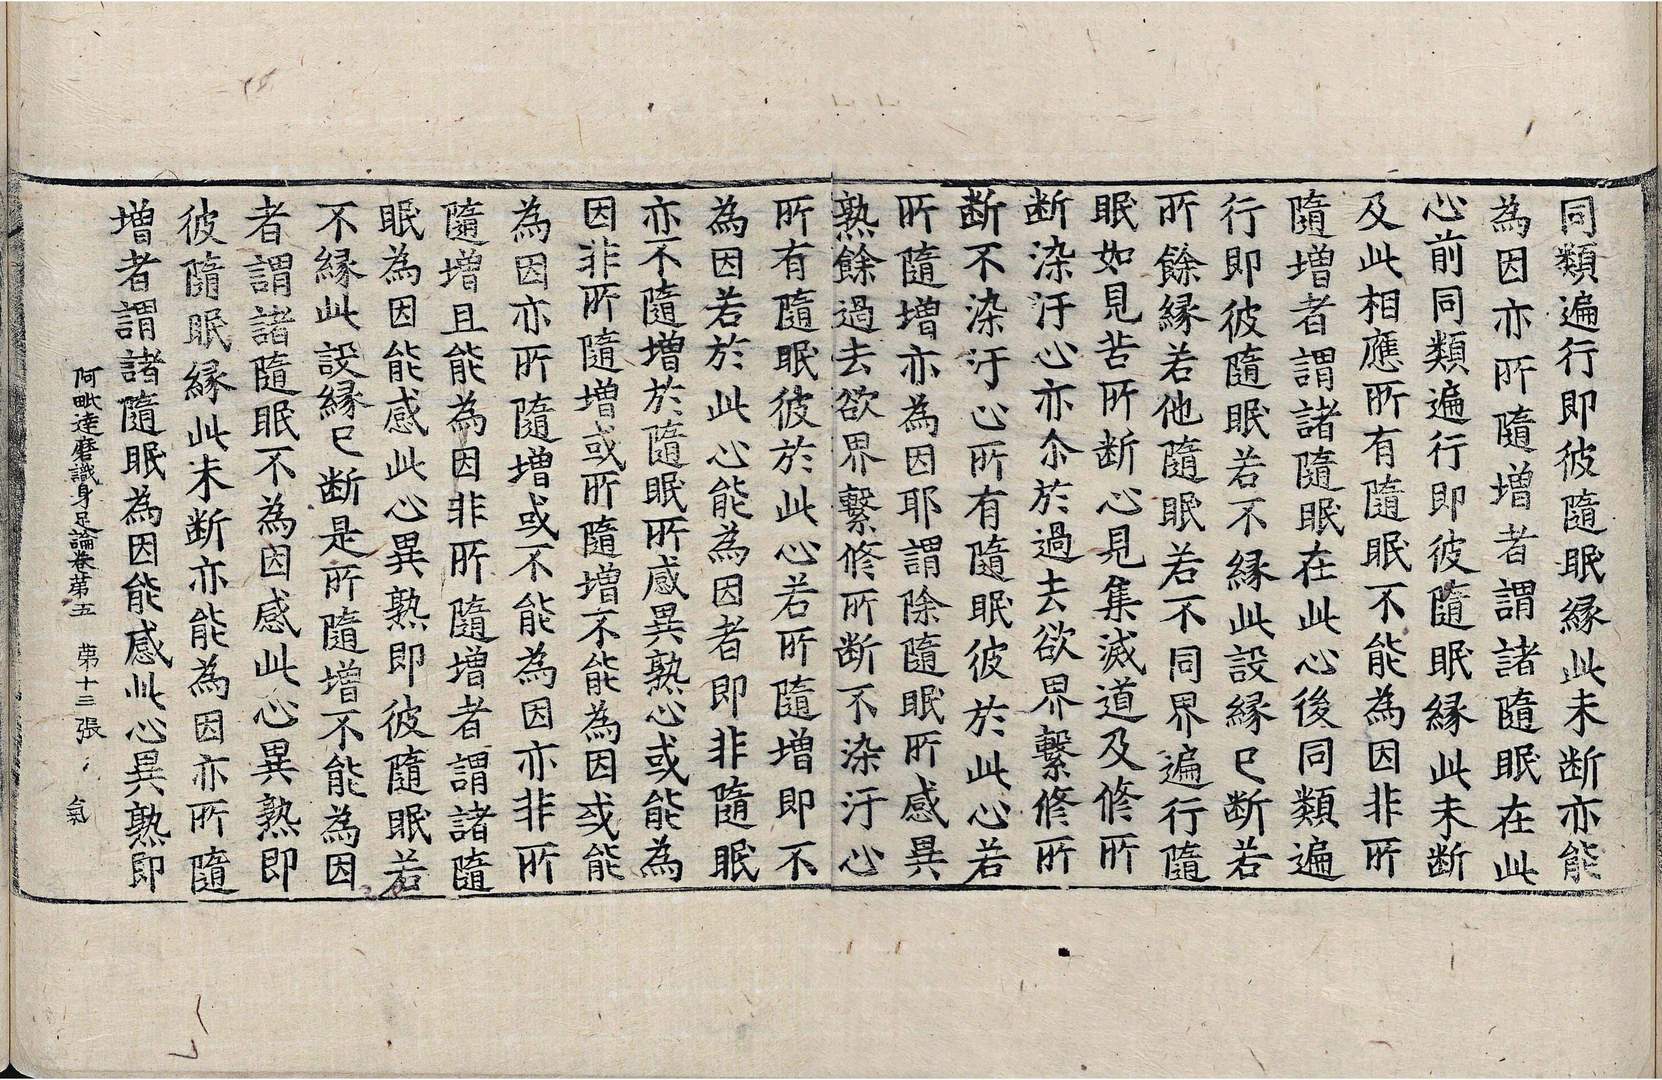 同類遍行即彼隨眠緣此未断亦能
為因亦所隨增者謂諸隨眠在此
心前同類遍行即彼隨眠緣此未断
及此相應所有隨眠不能為因非所
隨增者謂諸隨眠在此心後同類遍
行即彼隨眠若不緣此設緣已断若
所餘緣若他隨眠若不同界遍行隨
眠如見苦所断心見集滅道及修所
断染汙心亦尒於過去欲界繫修所
断不染汙心所有隨眠彼於此心若
所隨增亦為因耶謂除隨眠所感異
熟餘過去欲界繫修所断不染汙心
所有隨眠彼於此心若所隨增即不
為因若於此心能為因者即非隨眠
亦不隨增於隨眠所感異熟心或能為
因非所隨增或所隨增不能為因或能
為因亦所隨增或不能為因亦非所
隨增且能為因非所隨增者謂諸隨
眠為因能感此心異熟即彼隨眠若
不緣此設緣已断是所隨增不能為因
者謂諸隨眠不為因感此心異熟即
彼隨眠緣此未断亦能為因亦所隨
增者謂諸隨眠為因能感此心異熟即
阿毗達磨識身足論卷苐五 苐十三張 氣